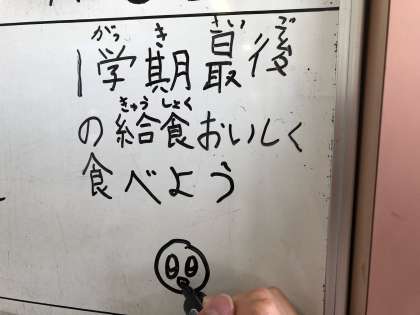 がっ き さい ご
1学期最後
きゅう しょく
の給食おいしく
食べよう